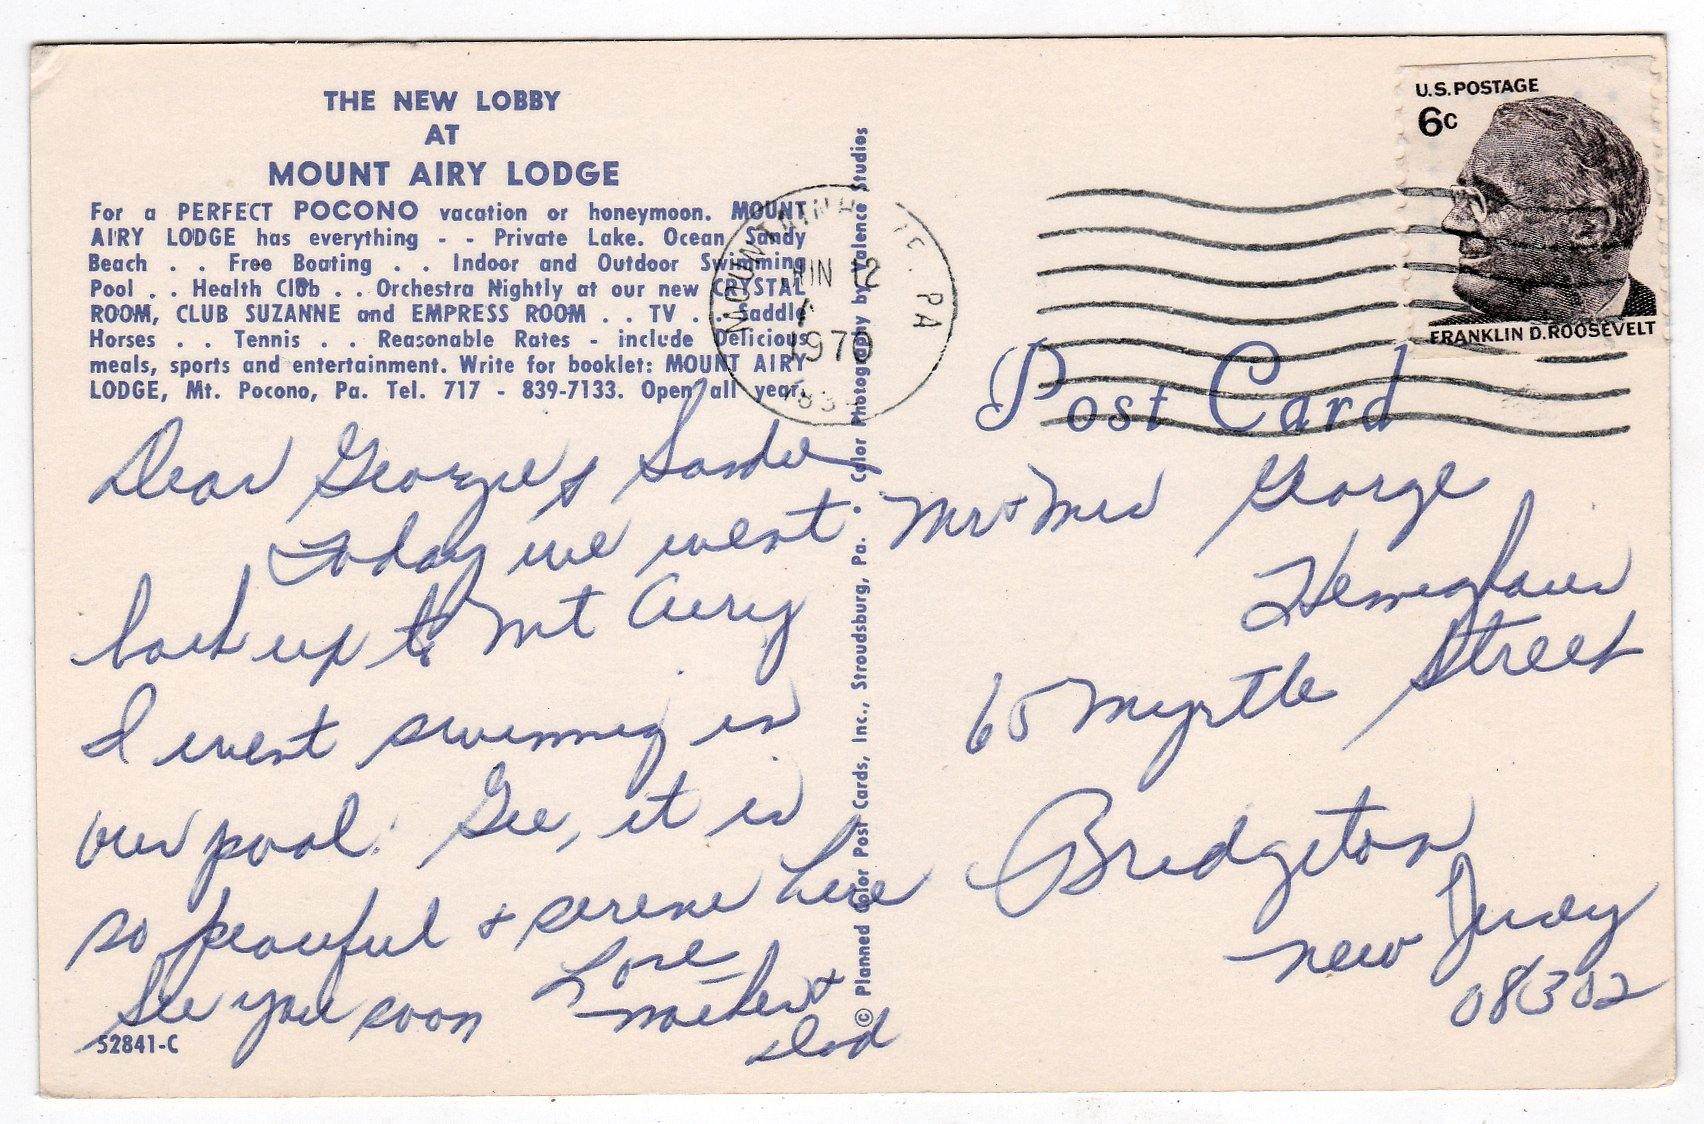 THE NEW LOBBY
AT
MOUNT AIRY LODGE
For a PERFECT POCONO vacation or honeymoon. MOUNT
AIRY LODGE has everything - - Private Lake. Ocean Sandy
Beach . . Free Boating . . Indoor and Outdoor Swimming
Pool . . Health Club . . Orchestra Nightly at our new CRYSTAL
ROOM, CLUB SUZANNE and EMPRESS ROOM . . TV . . Saddle
Horses . . Tennis . . Reasonable Rates - include Delicious
meals, sports and entertainment. Write for booklet: MOUNT AIRY
LODGE, Mt. Pocono, Pa. Tel. 717 - 839-7133. Open all year.
Dear George &
Today we went
back up to Mt Airy
I went swimming in
our pool. Gee, it is
so peaceful + serene here
See you soon Love
Mother +
Dad
52841-C
© Planned Color Post Cards, Inc., Stroudsburg, Pa. • Color Photography by Valence Studios
PA
JUN 12
1970
U.S. POSTAGE
6c
FRANKLIN D. ROOSEVELT
Post Card
Mr + Mrs George
65 Myrtle Street
Bridgeton
New Jersey
08302